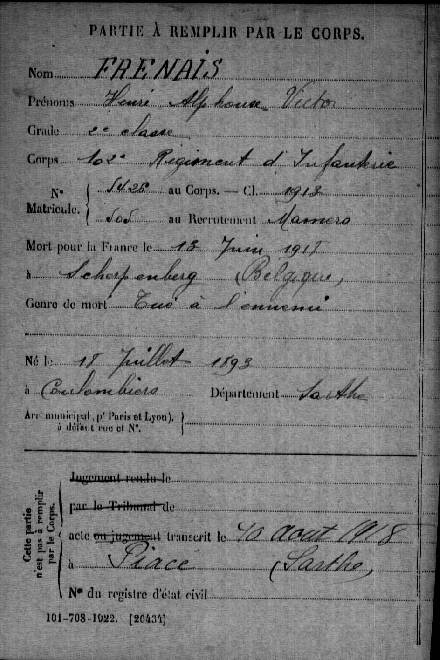 PARTIE À REMPLIR PAR LE CORPS.
Nom FRENAIS
Prénoms Henri Alphonse Victor
Grade 2e classe
Corps 102e Régiment d'Infanterie
N° Matricule. 5426 au Corps. — Cl. 1913
505 au Recrutement Mamers
Mort pour la France le 13 Juin 1918
à Scherpenberg (Belgique)
Genre de mort Tué à l'ennemi
Né le 18 Juillet 1893
à Coulombiers Département Sarthe
Arr. municipal (pr Paris et Lyon),
à défaut rue et N°.
Cette partie n'est pas à remplir par le Corps.
Jugement rendu le
par le Tribunal de
acte ou jugement transcrit le 10 août 1918
à Piacé (Sarthe)
N° du registre d'état civil
101-708-1922. [26434]